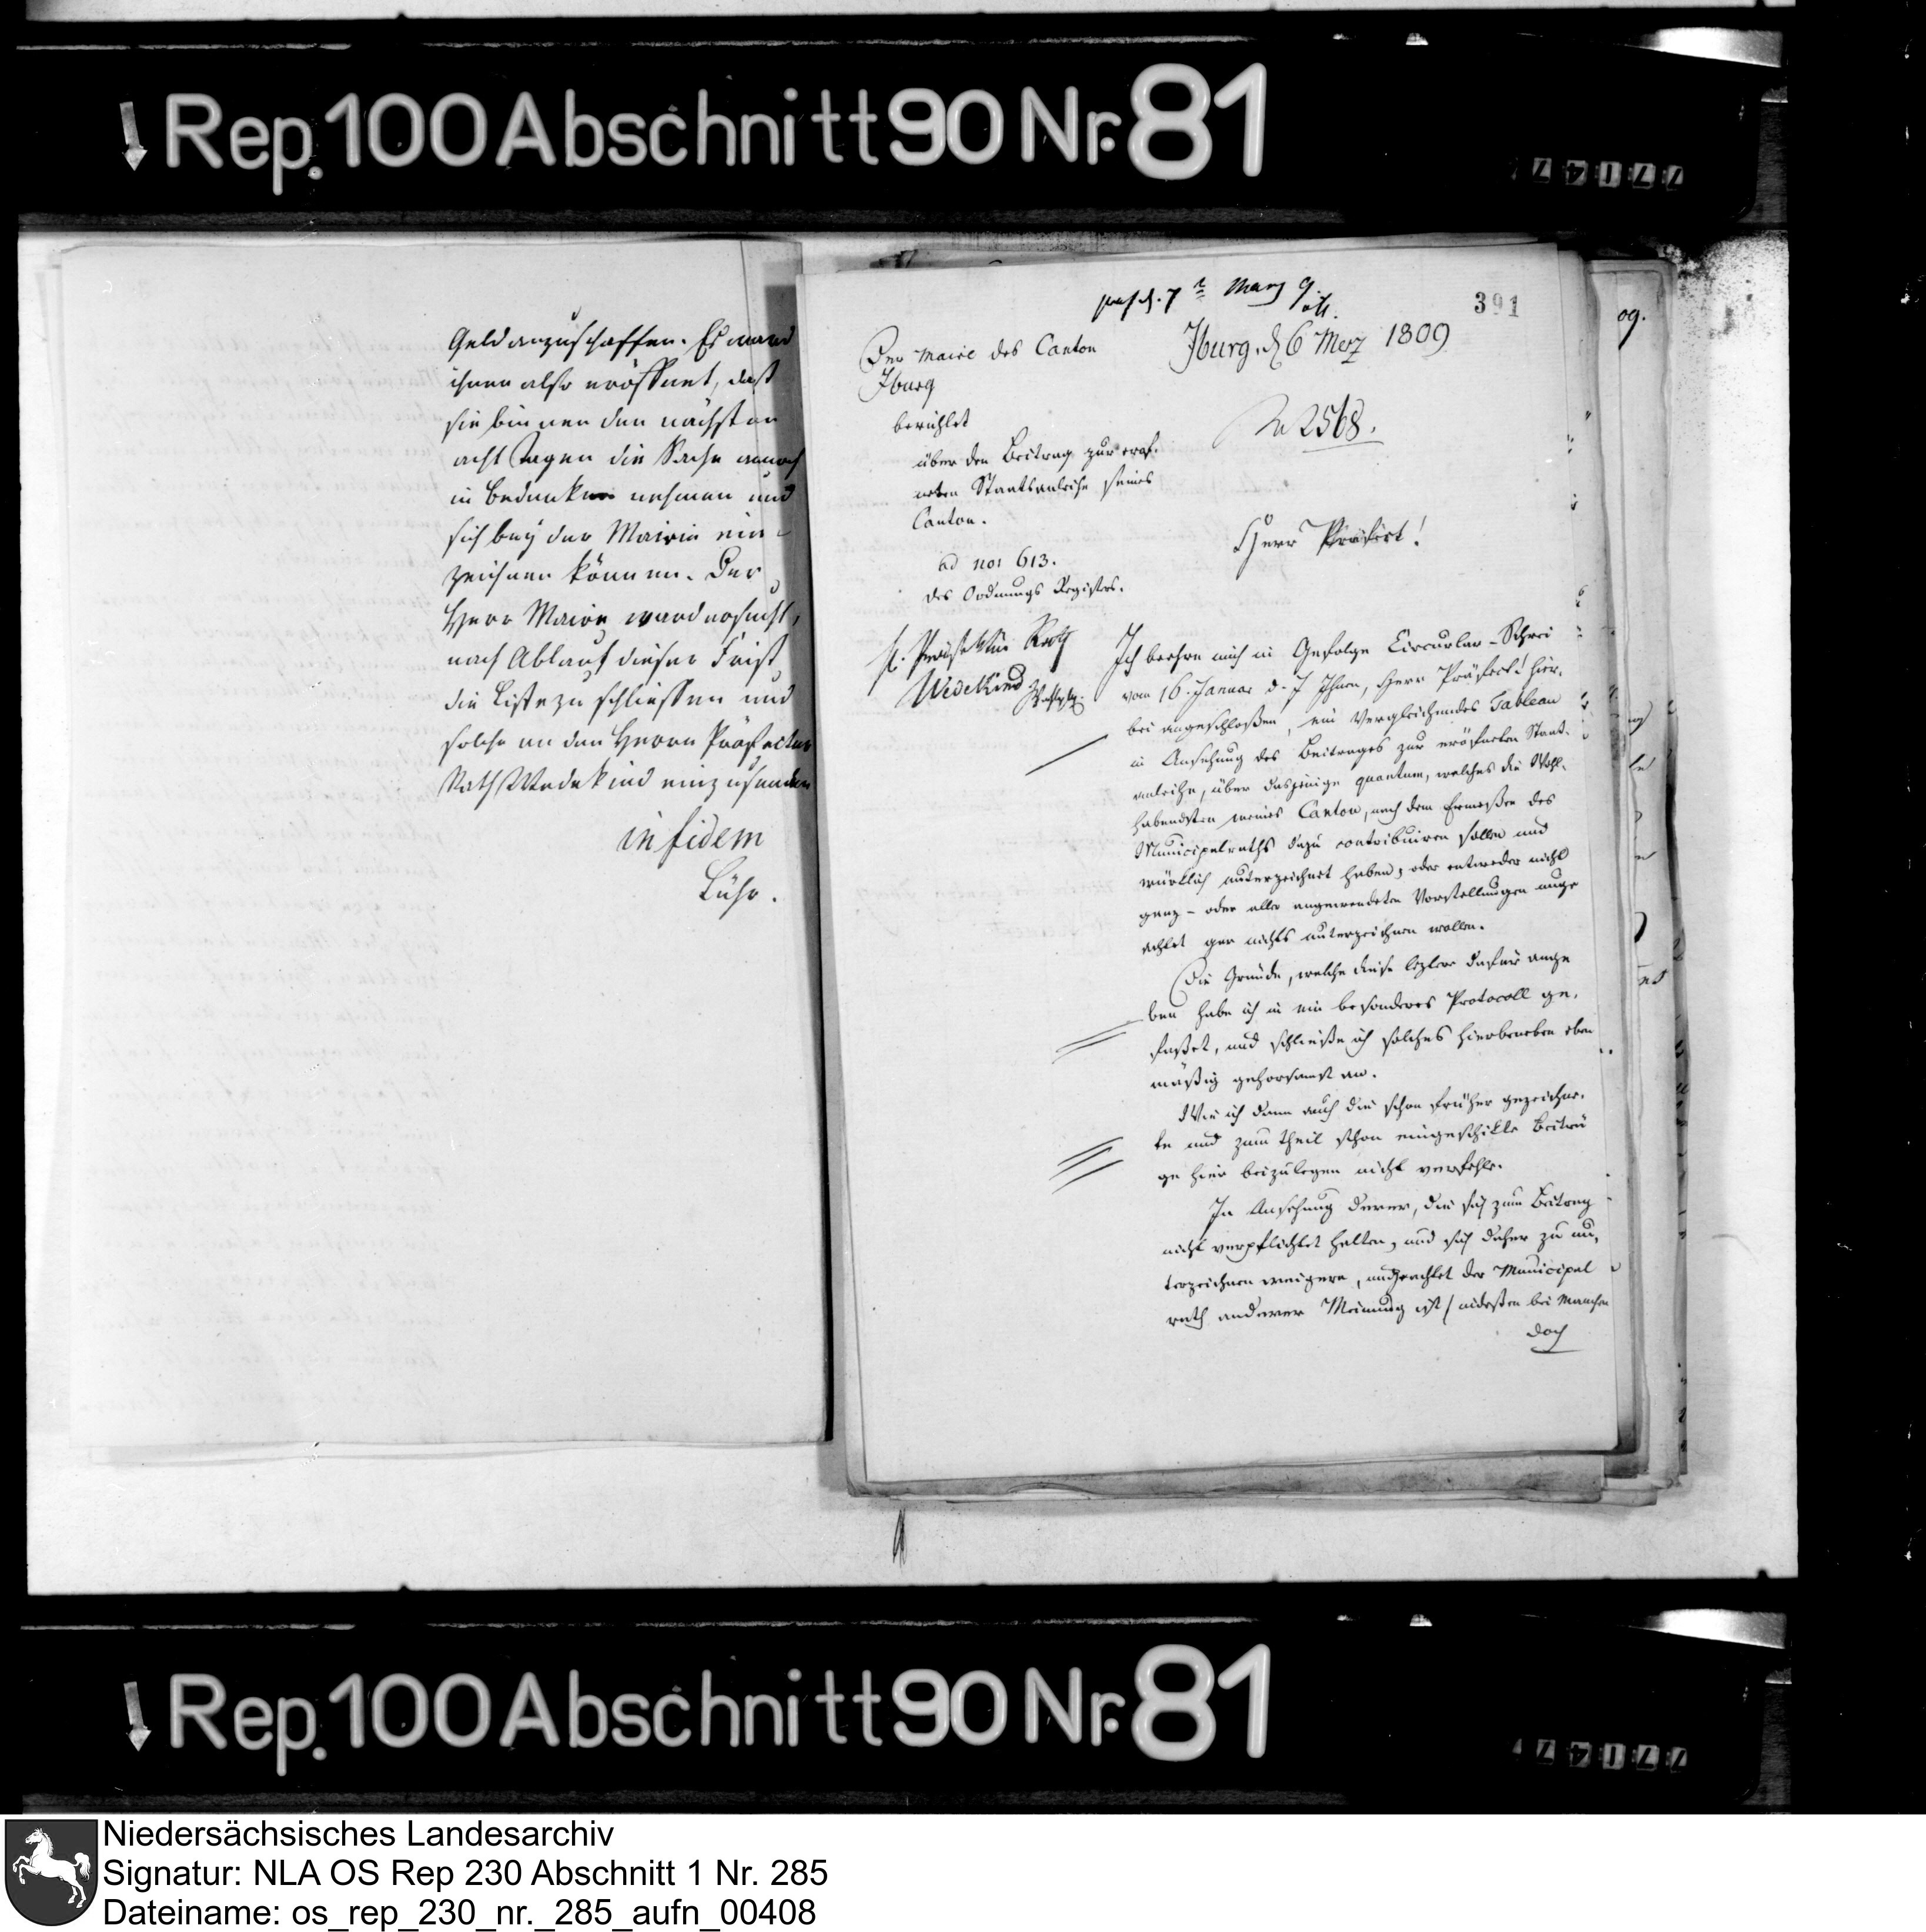 Rep. 100 Abschnitt 90 Nr. 81
Geld anzuschaffen. Es ward
ihnen also eröffnet, daß
sie binnen den nächsten
acht Tagen die Sache annoch
in Bedenken nehmen und
sich bey der Mairie ein-
zeichnen können. Der
Herr Maire ward ersucht,
nach Ablauf dieser Frist
die Liste zu schliessen und
solche an den Herrn Präfectur
Rath Wedekind einzusenden
in fidem
Lühr.
391
praes. d. 7 März 9.
Iburg, d 6 Merz 1809
Der Maire des Canton
Iburg
berichtet
über den Beitrag zur eröf-
neten Staatsanleihe seines
Canton.
ad nos 613.
des Ordnungs Registers.
N 2568.
Herr Präfect!
H. Präfektur Rath
Wedekind
Ich beehre mich in Gefolge Circular-Schrei
vom 16. Januar d. J Ihnen, Herr Präfect! hier-
bei angeschloßen, ein Vergleichendes Tableau
in Ansehung des Beitrages zur eröfneten Staat-
anleihe, über dasjenige quantum, welches die Wohl-
habendsten meines Canton, nach dem Ermeßen des
Municipalraths dazu contribuiren sollen und
würklich unterzeichnet haben, oder entweder nicht
ganz - oder aller angewendeten Vorstellungen unge
achtet gar nichts unterzeichnen wollen.
Die Gründe, welche diese leztere dafür ange
ben habe ich in ein besonderes Protocoll ge-
faßet, und schließe ich solches hierbeneben eben
mäßig gehorsamst an.
Wie ich dann auch die schon früher gezeichne-
te und zum theil schon eingeschikte Beiträ
ge hier beizulegen nicht verfehle.
In Ansehung derer, die sich zum Beitrag
nicht verpflichtet halten, und sich daher zu un-
terzeichnen weigern, ungeachtet der Municipal
rath anderer Meinung ist / indeßen bei manchen
doch
og.
Rep. 100 Abschnitt 90 Nr. 81
Niedersächsisches Landesarchiv
Signatur: NLA OS Rep 230 Abschnitt 1 Nr. 285
Dateiname: os_rep_230_nr._285_aufn_00408